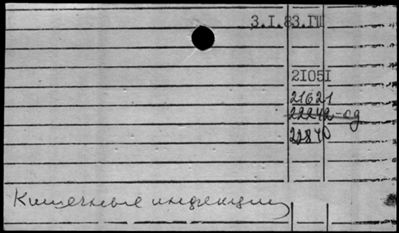 3.I.83.ГШ
2I05I
21621
22242-од
22840
Кишечные инфекции